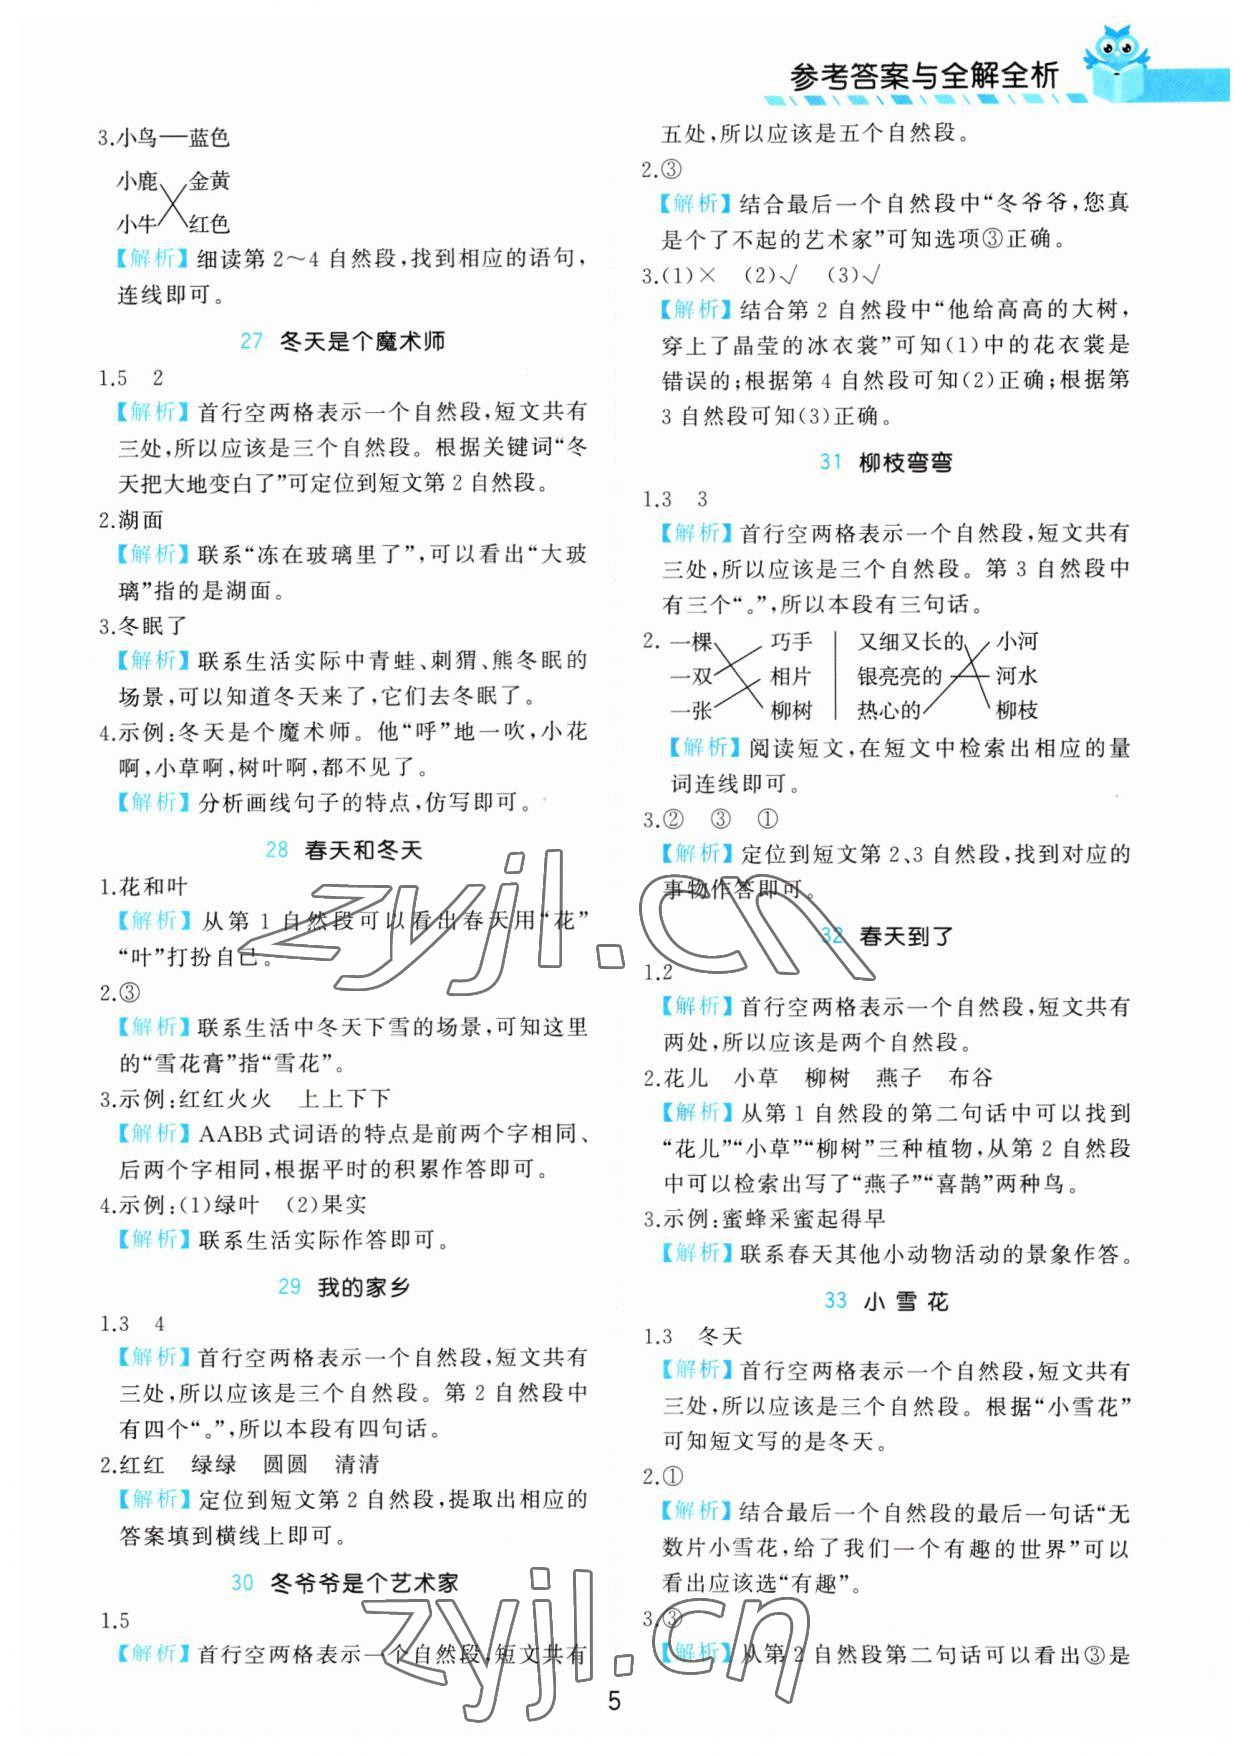 参考答案与全解全析
3.小鸟──蓝色
小鹿 金黄
小牛 红色
【解析】细读第2～4自然段,找到相应的语句,
连线即可。
27 冬天是个魔术师
1.5 2
【解析】首行空两格表示一个自然段,短文共有
三处,所以应该是三个自然段。根据关键词“冬
天把大地变白了”可定位到短文第2自然段。
2.湖面
【解析】联系“冻在玻璃里了”,可以看出“大玻
璃”指的是湖面。
3.冬眠了
【解析】联系生活实际中青蛙、刺猬、熊冬眠的
场景,可以知道冬天来了,它们去冬眠了。
4.示例:冬天是个魔术师。他“呼”地一吹,小花
啊,小草啊,树叶啊,都不见了。
【解析】分析画线句子的特点,仿写即可。
28 春天和冬天
1.花和叶
【解析】从第1自然段可以看出春天用“花”
“叶”打扮自己。
2.③
【解析】联系生活中冬天下雪的场景,可知这里
的“雪花膏”指“雪花”。
3.示例:红红火火 上上下下
【解析】AABB式词语的特点是前两个字相同、
后两个字相同,根据平时的积累作答即可。
4.示例:(1)绿叶 (2)果实
【解析】联系生活实际作答即可。
29 我的家乡
1.3 4
【解析】首行空两格表示一个自然段,短文共有
三处,所以应该是三个自然段。第2自然段中
有四个“。”,所以本段有四句话。
2.红红 绿绿 圆圆 清清
【解析】定位到短文第2自然段,提取出相应的
答案填到横线上即可。
30 冬爷爷是个艺术家
1.5
【解析】首行空两格表示一个自然段,短文共有
五处,所以应该是五个自然段。
2.③
【解析】结合最后一个自然段中“冬爷爷,您真
是个了不起的艺术家”可知选项③正确。
3.(1)× (2)√ (3)√
【解析】结合第2自然段中“他给高高的大树,
穿上了晶莹的冰衣裳”可知(1)中的花衣裳是
错误的;根据第4自然段可知(2)正确;根据第
3自然段可知(3)正确。
31 柳枝弯弯
1.3 3
【解析】首行空两格表示一个自然段,短文共有
三处,所以应该是三个自然段。第3自然段中
有三个“。”,所以本段有三句话。
2. 一棵 巧手 又细又长的 小河
一双 相片 银亮亮的 河水
一张 柳树 热心的 柳枝
【解析】阅读短文,在短文中检索出相应的量
词连线即可。
3.② ③ ①
【解析】定位到短文第2、3自然段,找到对应的
事物作答即可。
32 春天到了
1.2
【解析】首行空两格表示一个自然段,短文共有
两处,所以应该是两个自然段。
2.花儿 小草 柳树 燕子 布谷
【解析】从第1自然段的第二句话中可以找到
“花儿”“小草”“柳树”三种植物,从第2自然段
中可以检索出写了“燕子”“喜鹊”两种鸟。
3.示例:蜜蜂采蜜起得早
【解析】联系春天其他小动物活动的景象作答。
33 小雪花
1.3 冬天
【解析】首行空两格表示一个自然段,短文共有
三处,所以应该是三个自然段。根据“小雪花”
可知短文写的是冬天。
2.①
【解析】结合最后一个自然段的最后一句话“无
数片小雪花,给了我们一个有趣的世界”可以
看出应该选“有趣”。
3.③
【解析】从第2自然段第二句话可以看出③是
5
zyjl.cn
zyjl.cn